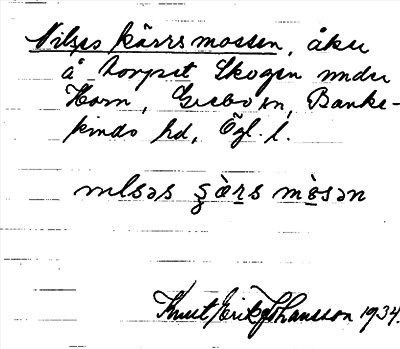 Nilses kärrsmossen, åker
å torpet Skogen under
Horn, Grebo sn, Banke-
kinds hd, Ögl. l.
nılsəs ʂæ̀rs mòsən
Knut Erik Johansson 1934.